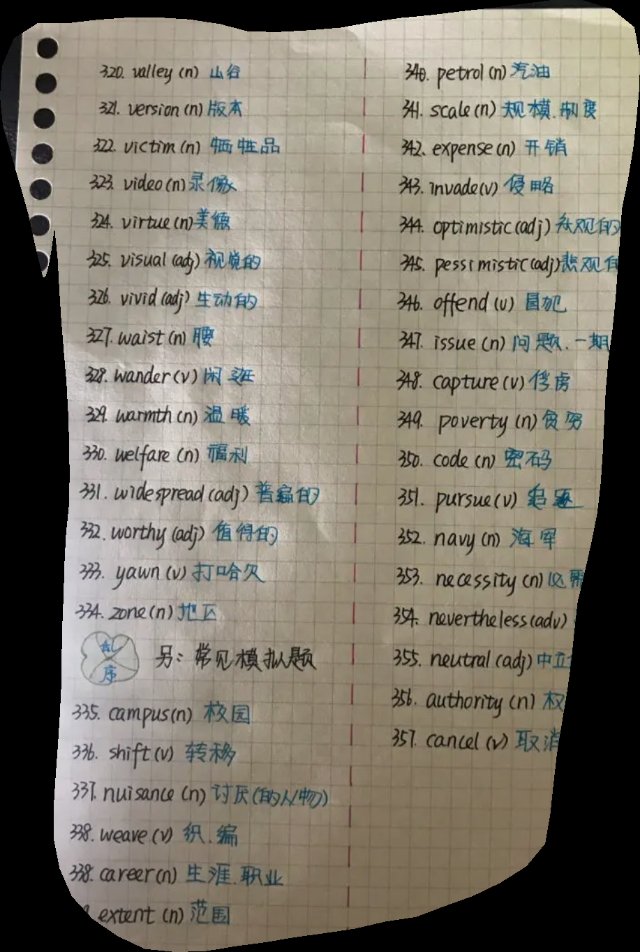 320. valley (n) 山谷
321. version (n) 版本
322. victim (n) 牺牲品
323. video (n) 录像
324. virtue (n) 美德
325. visual (adj) 视觉的
326. vivid (adj) 生动的
327. waist (n) 腰
328. wander (v) 闲逛
329. warmth (n) 温暖
330. welfare (n) 福利
331. widespread (adj) 普遍的
332. worthy (adj) 值得的
333. yawn (v) 打哈欠
334. zone (n) 地区
乱序
另: 常见模拟题
335. campus(n) 校园
336. shift (v) 转移
337. nuisance (n) 讨厌(的人/物)
338. weave (v) 织、编
338. career(n) 生涯、职业
extent (n) 范围
340. petrol (n) 汽油
341. scale (n) 规模、制度
342. expense (n) 开销
343. invade(v) 侵略
344. optimistic (adj) 乐观的
345. pessimistic (adj) 悲观的
346. offend (v) 冒犯
347. issue (n) 问题、一期
348. capture (v) 俘虏
349. poverty (n) 贫穷
350. code (n) 密码
351. pursue (v) 追逐
352. navy (n) 海军
353. necessity (n) 必需
354. nevertheless (adv)
355. neutral (adj) 中立
356. authority (n) 权
357. cancel (v) 取消